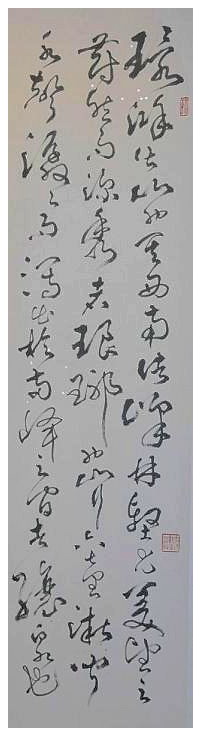 環滁皆山也其西南諸峰林壑尤美望之
蔚然而深秀者琅琊也山行六七里漸聞
水聲潺潺而瀉出於兩峰之間者釀泉也